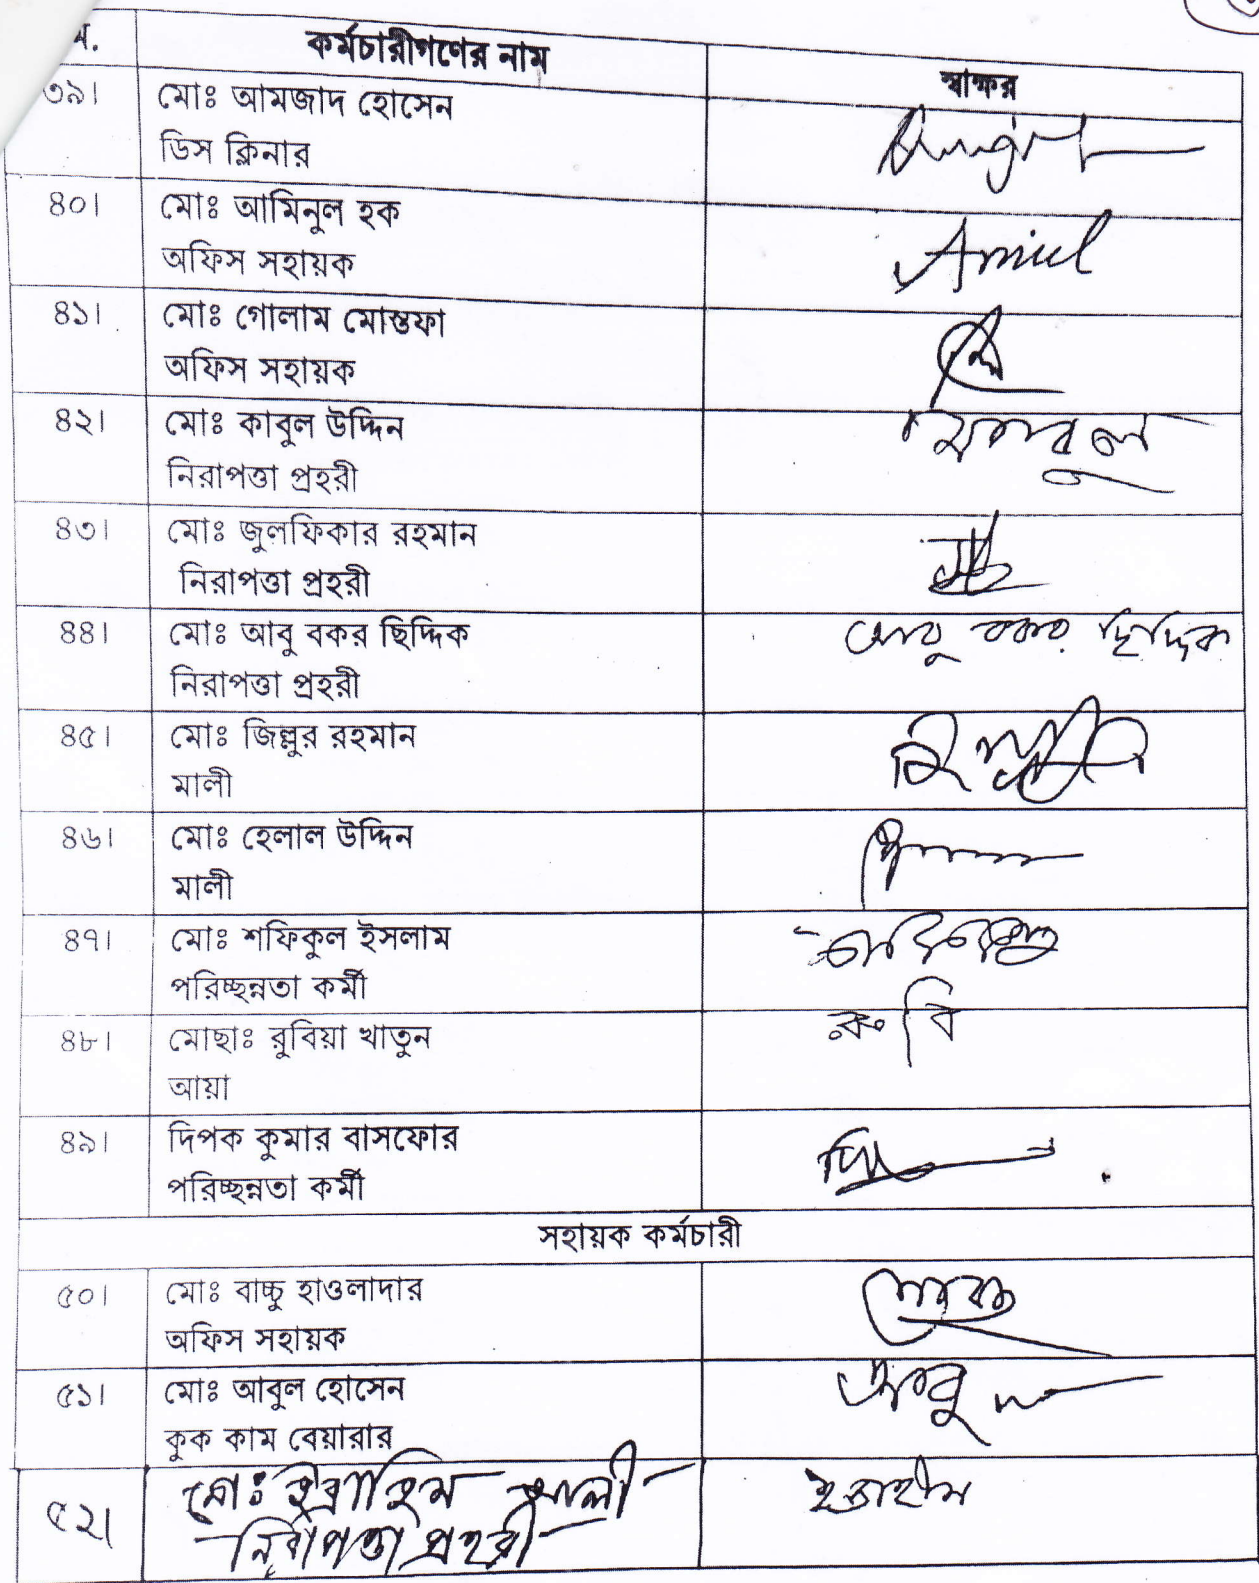 ম. কর্মচারীগণের নাম স্বাক্ষর
৩৯। মোঃ আমজাদ হোসেন
ডিস ক্লিনার
৪০। মোঃ আমিনুল হক Aminul
অফিস সহায়ক
৪১। মোঃ গোলাম মোস্তফা
অফিস সহায়ক
৪২। মোঃ কাবুল উদ্দিন
নিরাপত্তা প্রহরী
৪৩। মোঃ জুলফিকার রহমান
নিরাপত্তা প্রহরী
৪৪। মোঃ আবু বকর ছিদ্দিক আবু বকর ছিদ্দিক
নিরাপত্তা প্রহরী
৪৫। মোঃ জিল্লুর রহমান
মালী
৪৬। মোঃ হেলাল উদ্দিন
মালী
৪৭। মোঃ শফিকুল ইসলাম
পরিচ্ছন্নতা কর্মী
৪৮। মোছাঃ রুবিয়া খাতুন রুবি
আয়া
৪৯। দিপক কুমার বাসফোর
পরিচ্ছন্নতা কর্মী
সহায়ক কর্মচারী
৫০। মোঃ বাচ্চু হাওলাদার
অফিস সহায়ক
৫১। মোঃ আবুল হোসেন আবু
কুক কাম বেয়ারার
৫২। মোঃ ইব্রাহিম আলী ইব্রাহীম
নিরাপত্তা প্রহরী